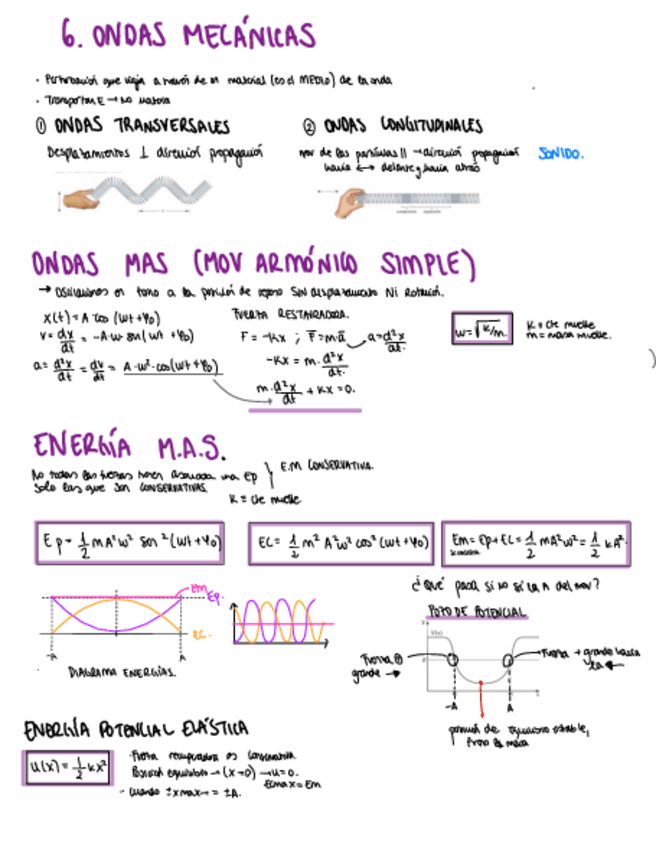 6. ONDAS MECÁNICAS
· Perturbación que viaja a través de un material (es el MEDIO) de la onda
· Transportan E → No materia
① ONDAS TRANSVERSALES
Desplazamientos ⊥ dirección propagación
② ONDAS LONGITUDINALES
mov de las partículas || → dirección propagación SONIDO.
hacia ↔ delante y hacia atrás
ONDAS MAS (MOV ARMÓNICO SIMPLE)
→ Oscilaciones en torno a la posición de reposo SIN desplazamiento Ni Rotación.
x(t) = A cos (wt + φ0)
v = dx/dt = -A·w sen(wt + φ0)
a = d²x/dt = dv/dt = A·w²·cos(wt + φ0)
FUERTA RESTAURADORA.
F = -Kx ; F = m·a a = d²x/dt.
-Kx = m·d²x/dt.
m·d²x/dt + Kx = 0.
w = √K/m
K = cte muelle
m = masa muelle.
)
ENERGÍA M.A.S.
No todas las fuerzas tienen asociada una Ep
Solo las que son CONSERVATIVAS
E.M CONSERVATIVA.
K = cte muelle
Ep = 1/2 m A² w² sen² (wt + φ0)
EC = 1/2 m² A² w² cos² (wt + φ0)
Em = Ep + EC = 1/2 m A² w² = 1/2 k A²
Em
Ep.
EC.
-A
A
DIAGRAMA ENERGÍAS.
¿Qué pasa si no sé la A del mov?
POZO DE POTENCIAL
Fuerza ⊕
grande →
Fuerza + grande hacia
la ←
-A
A
posición de equilibrio estable,
ENERGÍA POTENCIAL ELÁSTICA
U(x) = 1/2 kx²
· Fuerza recuperadora es conservativa
Posición equilibrio → (x=0) → u=0.
Ecmax = Em
· Cuando ±xmax → = ±A.